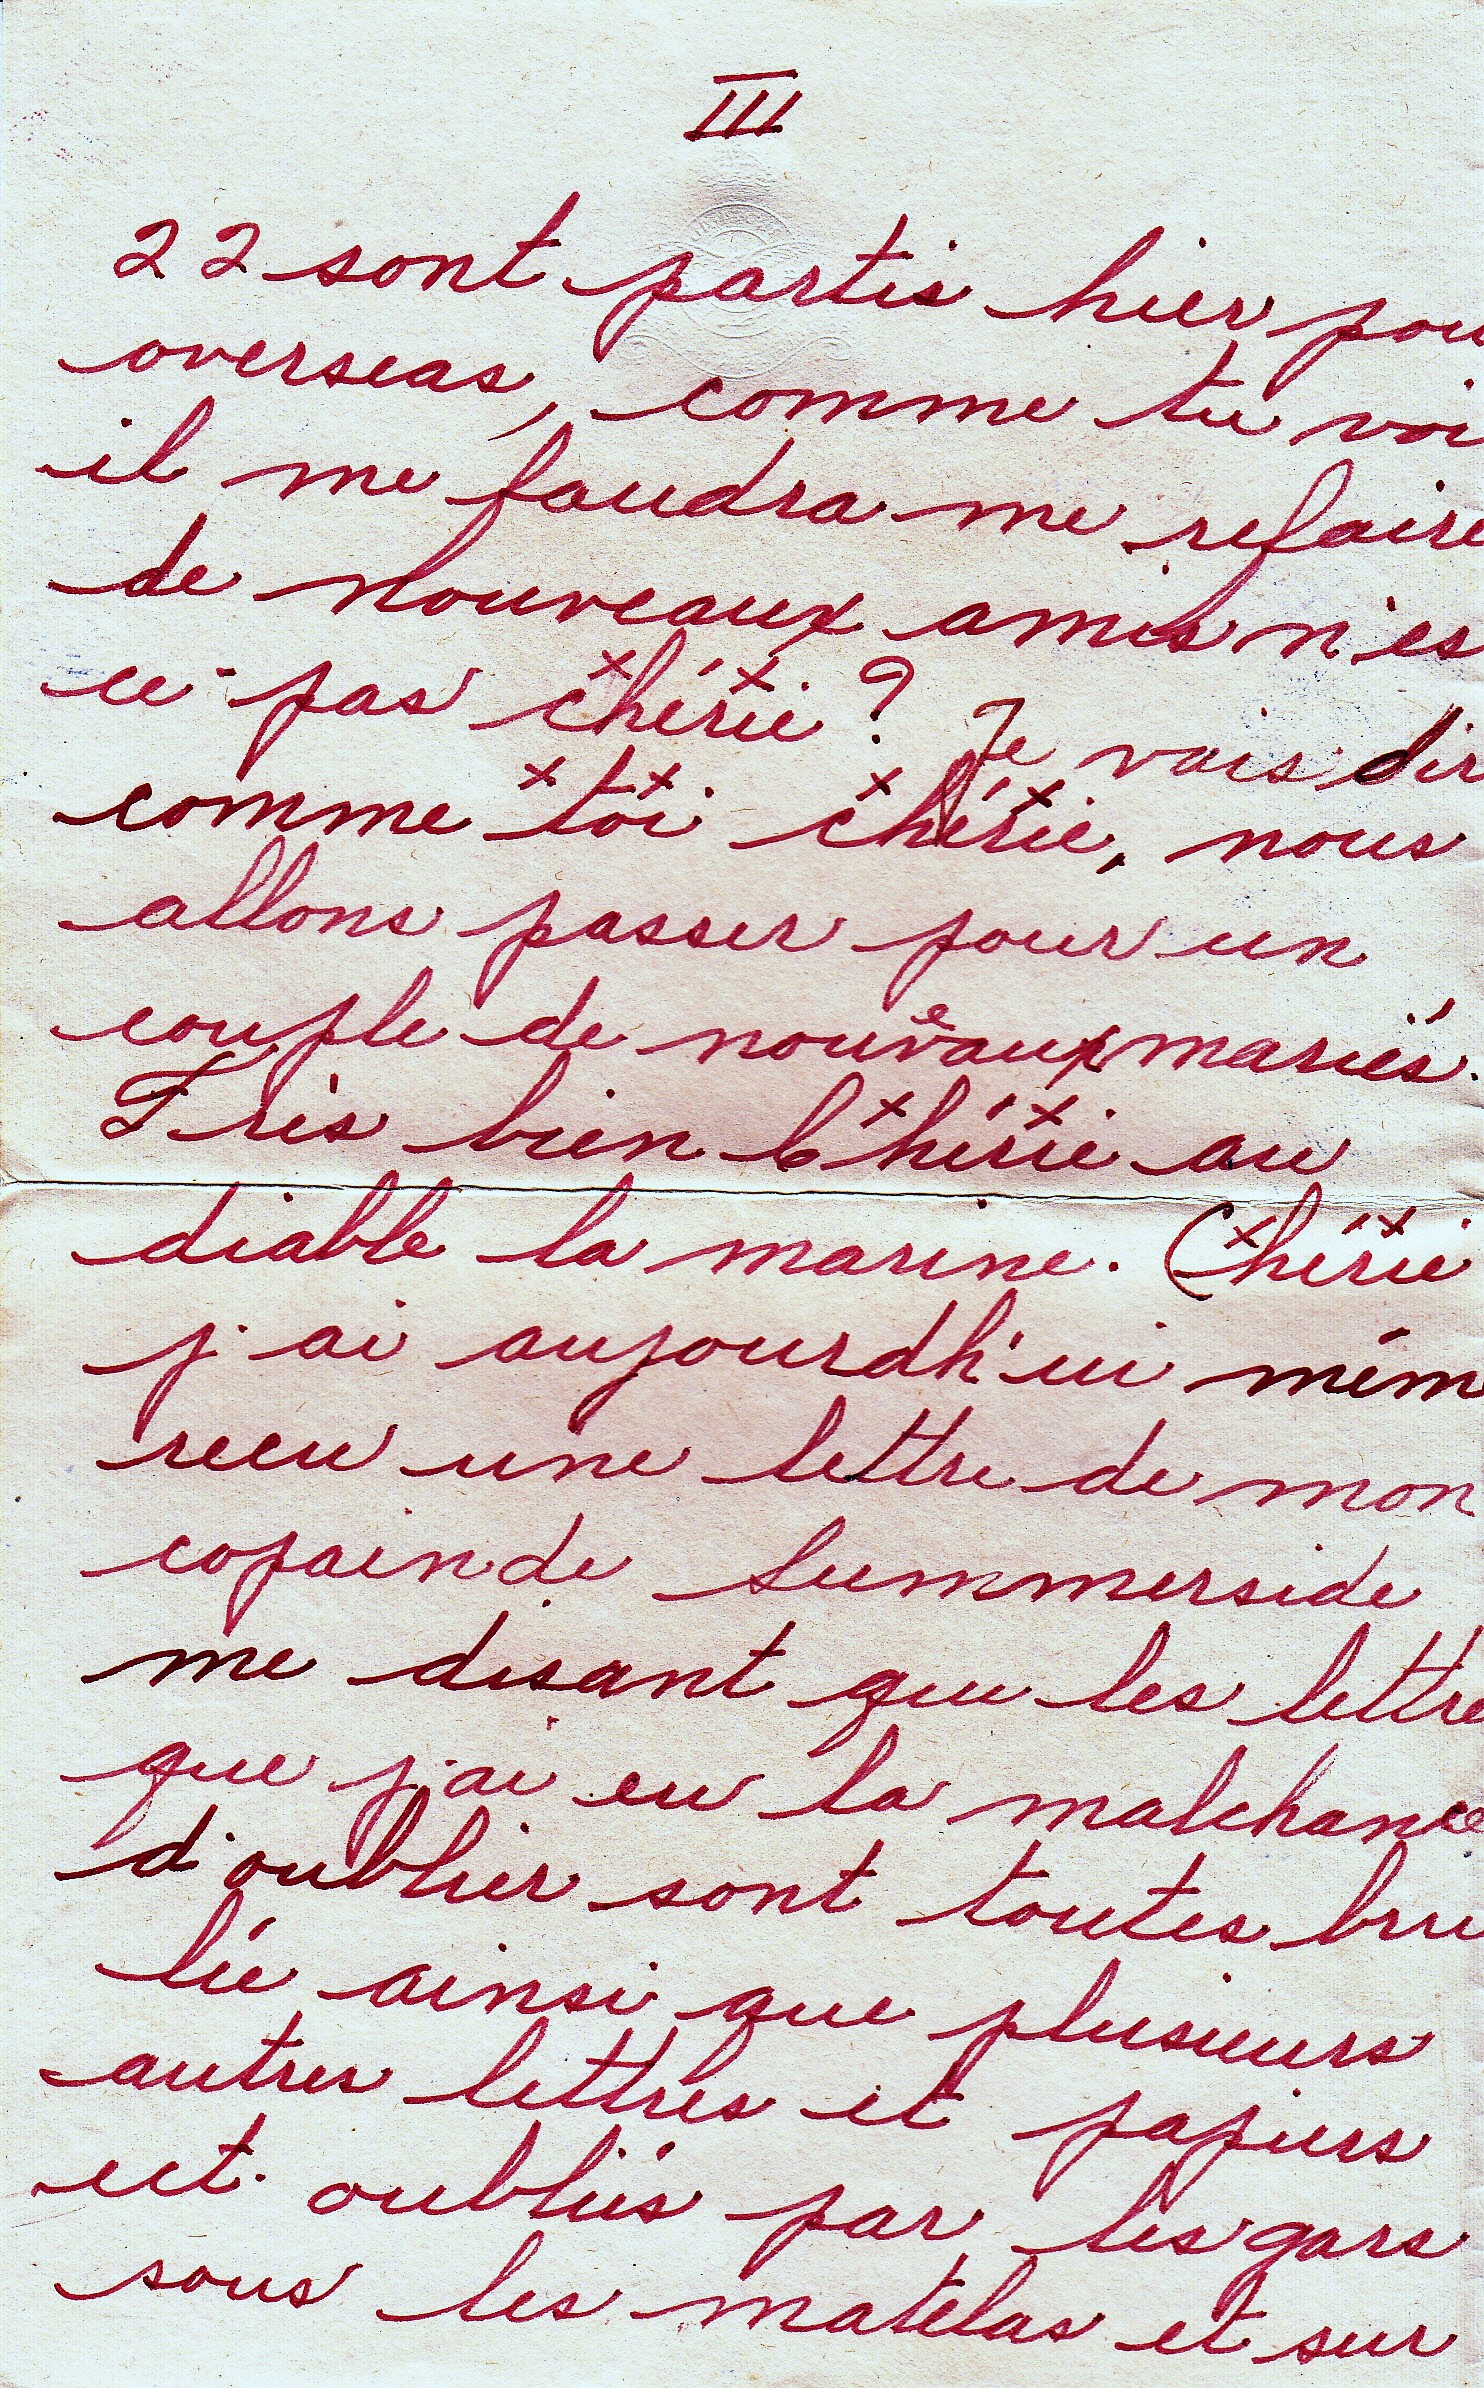 III
22 sont partis hier pou
overseas, comme tu voi
il me faudra me refaire
de nouveaux amis n'es
ce-pas chérie? Je vais dir
comme toi chérie, nous
allons passer pour un
couple de nouveaux mariés.
Très bien Chérie au
diable la marine. Chérie
j'ai aujourdh'ui mêm
recu une lettre de mon
copain de Summerside
me disant que les lettre
que j'ai eu la malchance
d'oublier sont toutes bru
lée ainsi que plusieurs
autres lettres et papiers
ect. oubliés par les gars
sous les matelas et sur